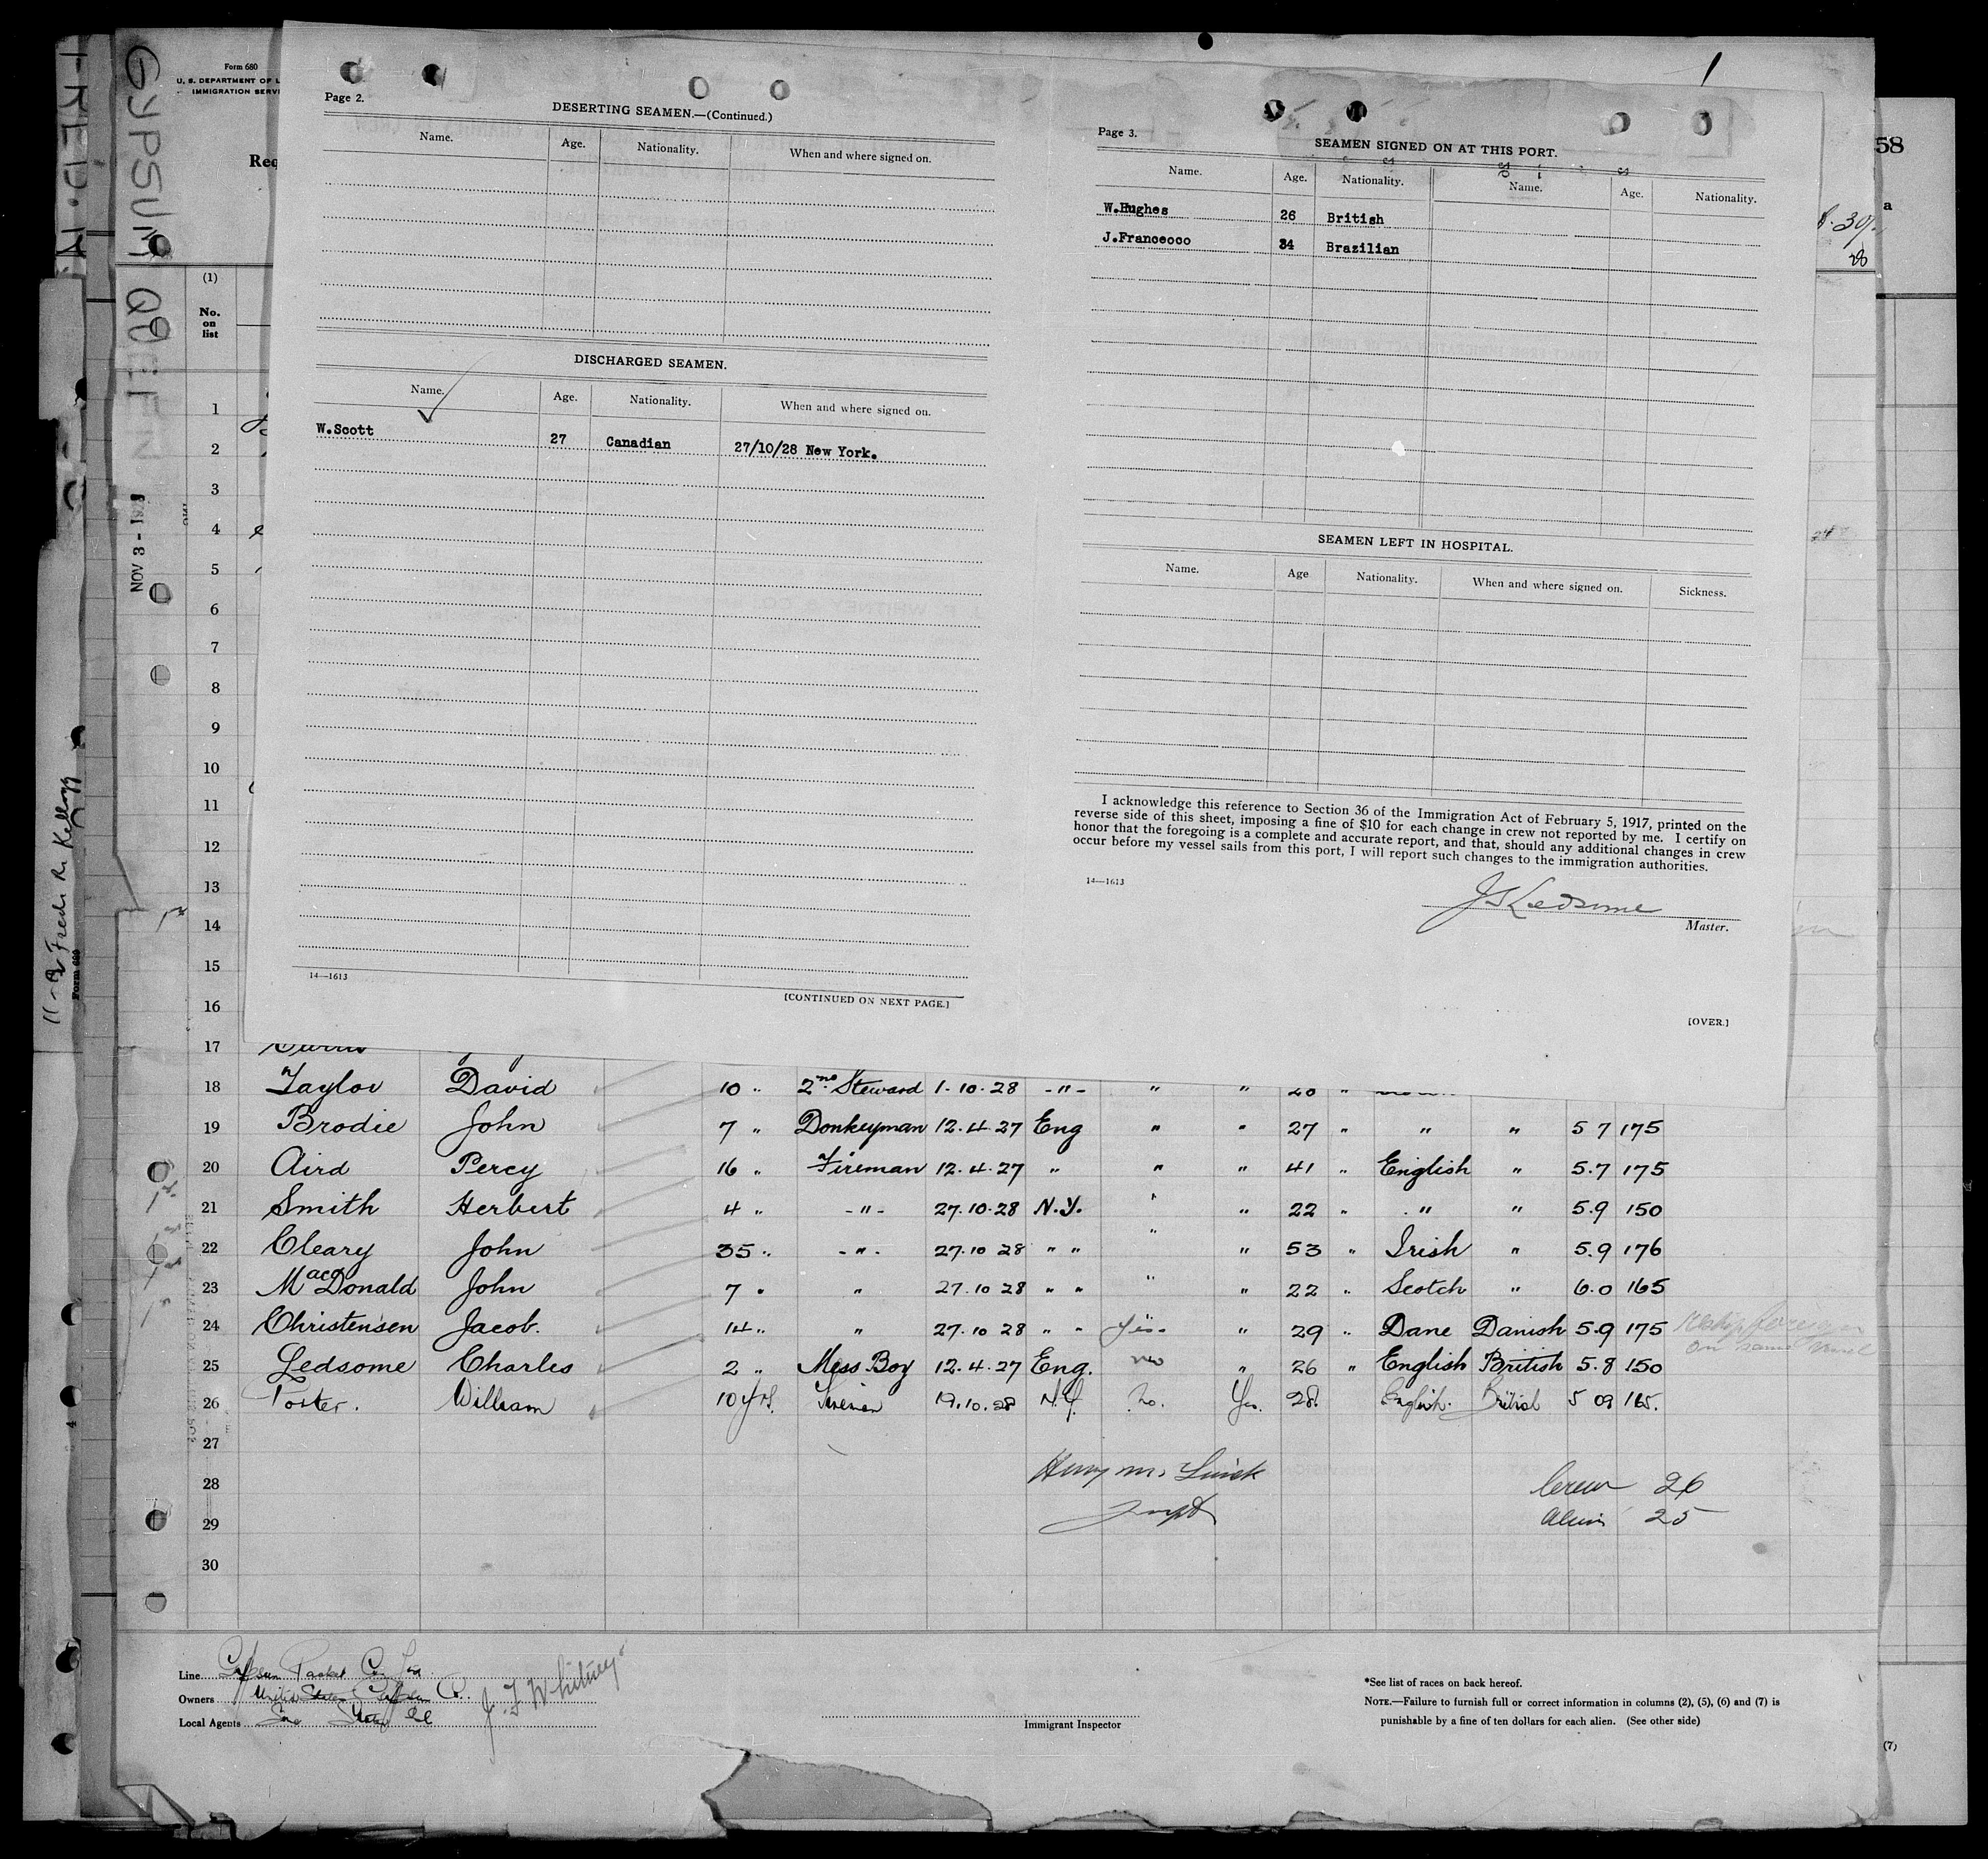 GYPSUM QUEEN NOV 3 - 1928
11-2 Fredk R. Kellogg
Form 680
Form 680
U. S. DEPARTMENT OF L
IMMIGRATION SERVI
Req
58
a
(1)
No.
on
list
Page 2.
DESERTING SEAMEN.—(Continued.)
Name. Age. Nationality. When and where signed on.
DISCHARGED SEAMEN.
Name. Age. Nationality. When and where signed on.
W.Scott 27 Canadian 27/10/28 New York.
14—1613
[CONTINUED ON NEXT PAGE.]
1
Page 3.
SEAMEN SIGNED ON AT THIS PORT.
Name. Age. Nationality. Name. Age. Nationality.
W.Hughes 26 British
J.Francoco 34 Brazilian
SEAMEN LEFT IN HOSPITAL.
Name. Age Nationality. When and where signed on. Sickness.
I acknowledge this reference to Section 36 of the Immigration Act of February 5, 1917, printed on the
reverse side of this sheet, imposing a fine of $10 for each change in crew not reported by me. I certify on
honor that the foregoing is a complete and accurate report, and that, should any additional changes in crew
occur before my vessel sails from this port, I will report such changes to the immigration authorities.
14—1613
J S Ledsome
Master.
[OVER.]
1
2
3
4
5
6
7
8
9
10
11
12
13
14
15
16
17
18 Taylor David 10 " 2nd Steward 1-10-28 -"- " " 20 "
19 Brodie John 7 " Donkeyman 12.4.27 Eng " " 27 " " " 5 7 175
20 Aird Percy 16 " Fireman 12.4.27 " " " 41 " English " 5.7 175
21 Smith Herbert 4 " -"- 27.10.28 N.Y. " " 22 " " " 5.9 150
22 Cleary John 35 " -"- 27.10 28 " " " " 53 " Irish " 5.9 176
23 MacDonald John 7 " " 27.10 28 " " " " 22 " Scotch " 6.0 165
24 Christensen Jacob. 14 " " 27.10 28 " " Yes " 29 " Dane Danish 5.9 175
on same vessel
25 Ledsome Charles 2 " Mess Boy 12.4.27 Eng. no " 26 " English British 5.8 150
26 Foster. William 10 yrs. Fireman 19.10.28 N.Y. No. Yes. 28. English. British 5 09 165.
27
28
29
30
Henry M.
Crew 26
Alien 25
Line Gypsum Packet Co. Ltd.
Owners United States Gypsum Co.
Local Agents
J. F. Whitney
Immigrant Inspector
*See list of races on back hereof.
NOTE.—Failure to furnish full or correct information in columns (2), (5), (6) and (7) is
punishable by a fine of ten dollars for each alien. (See other side)
(7)